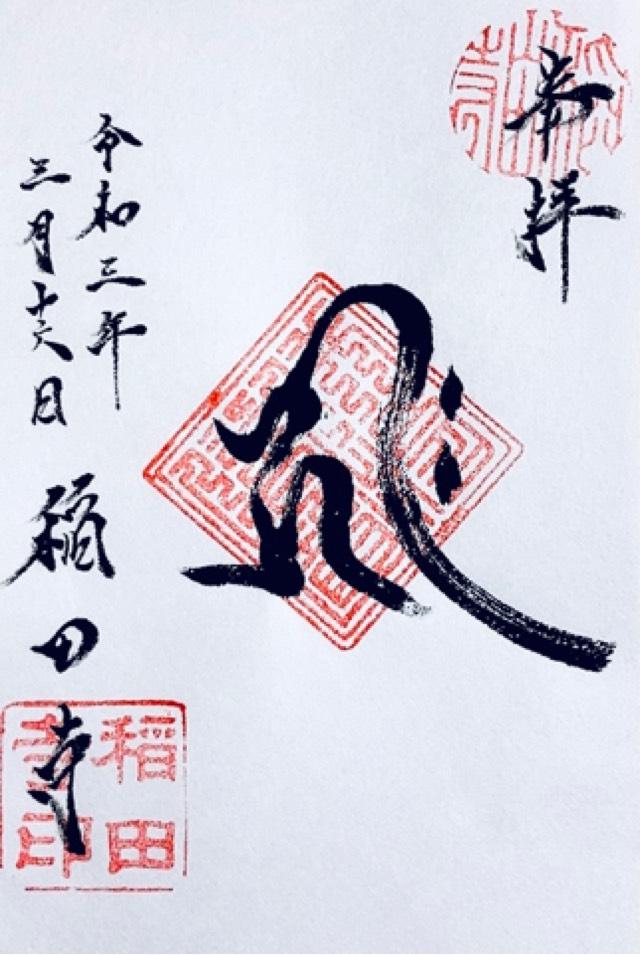 奉拝
令和三年
三月十六日
稲田寺
稲田
寺印